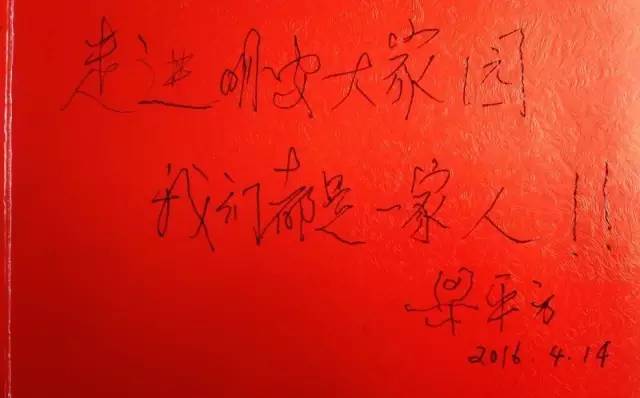 走进明安大家园
我们都是一家人!!
平方
2016.4.14